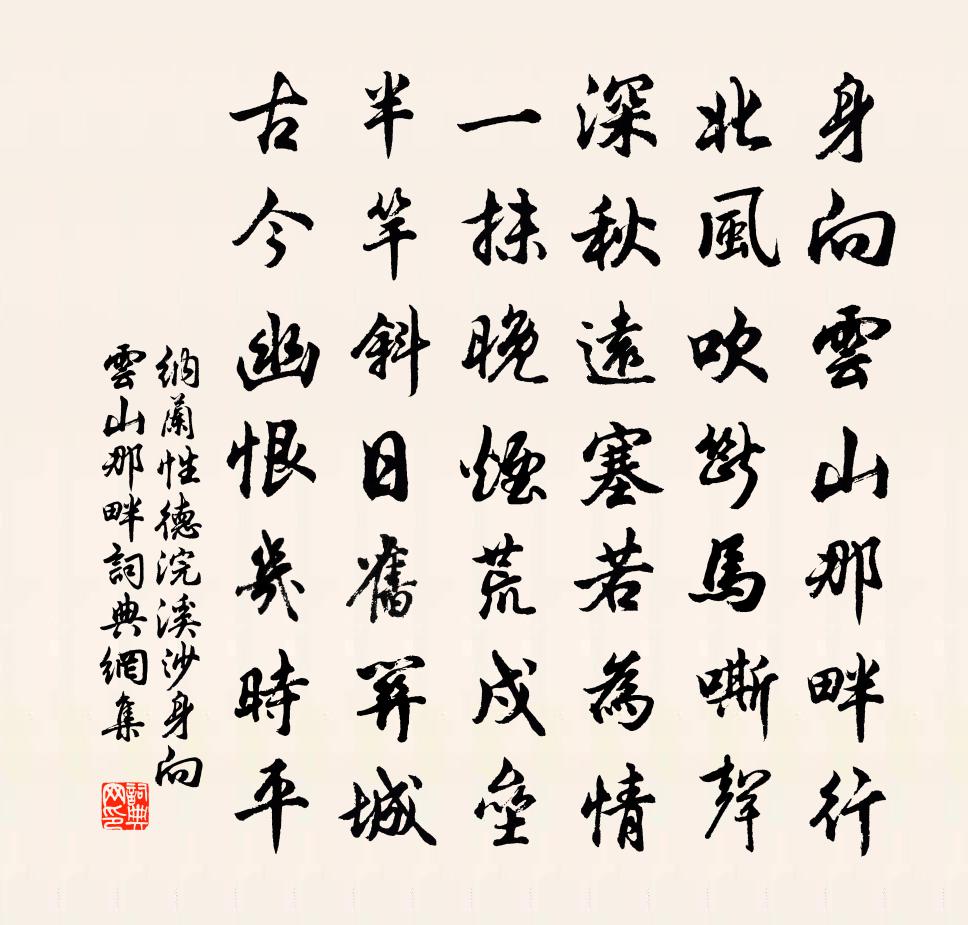 身向雲山那畔行
北風吹斷馬嘶聲
深秋遠塞若為情
一抹晚煙荒戍壘
半竿斜日舊關城
古今幽恨幾時平
納蘭性德浣溪沙身向
雲山那畔詞典網集
詞典
网印